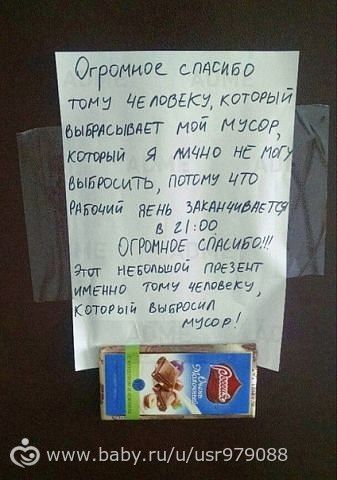 Огромное спасибо
тому человеку, который
выбрасывает мой мусор,
который я лично не могу
выбросить, потому что
рабочий день заканчивается
в 21:00
Огромное спасибо!!!
Этот небольшой презент
именно тому человеку,
который выбросил
мусор!
Россия
Очень
Молочный
www.baby.ru/u/usr979088